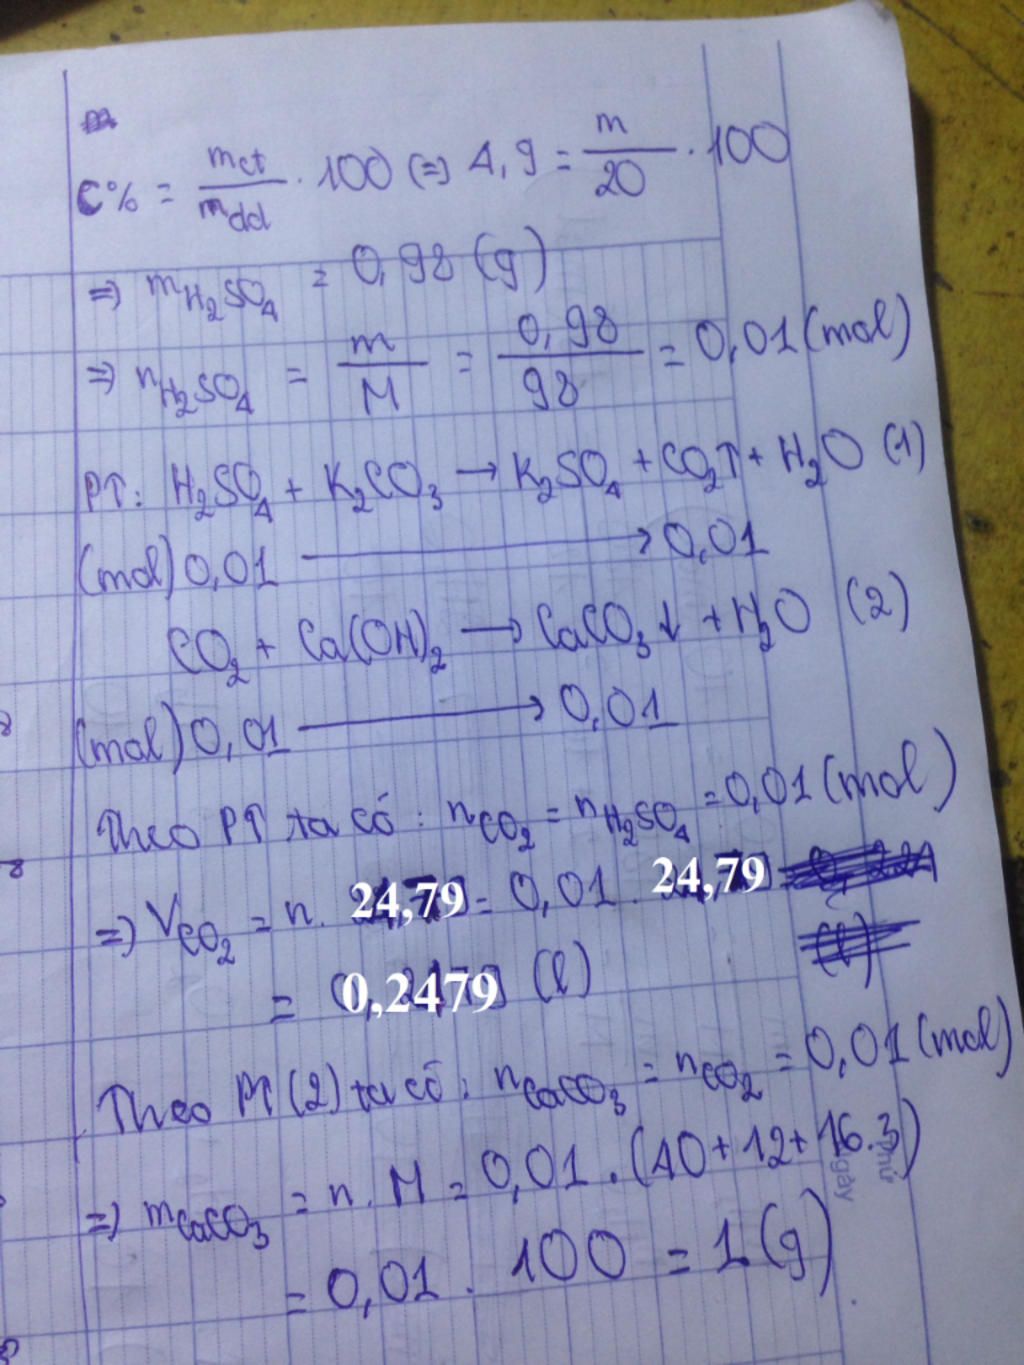 C% = mct/mdd . 100 (=) 4,9 = m/20 . 100
=) mH₂SO₄ = 0,98 (g)
=) nH₂SO₄ = m/M = 0,98/98 = 0,01 (mol)
PT: H₂SO₄ + K₂CO₃ → K₂SO₄ + CO₂↑ + H₂O (1)
(mol) 0,01 → 0,01
CO₂ + Ca(OH)₂ → CaCO₃↓ + H₂O (2)
(mol) 0,01 → 0,01
Theo PT ta có : nCO₂ = nH₂SO₄ = 0,01 (mol)
=) VCO₂ = n. 24,79 = 0,01 . 24,79
(l)
= 0,2479 (l)
Theo PT (2) ta có : nCaCO₃ = nCO₂ = 0,01 (mol)
=) mCaCO₃ = n . M = 0,01 . (40 + 12 + 16.3)
= 0,01 . 100 = 1 (g)
Thứ
Ngày